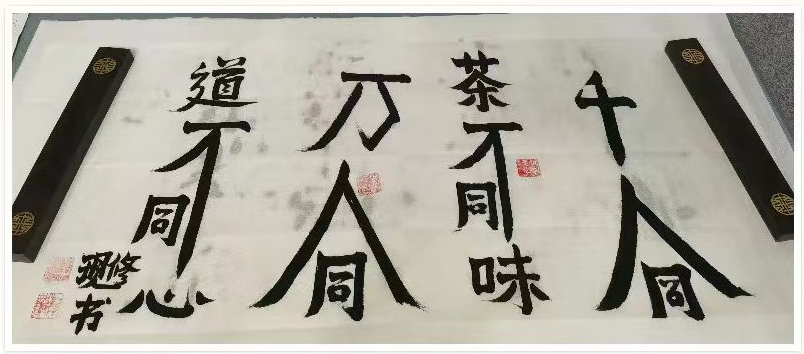 千人同
茶不同味
万人同
道不同心
修
书